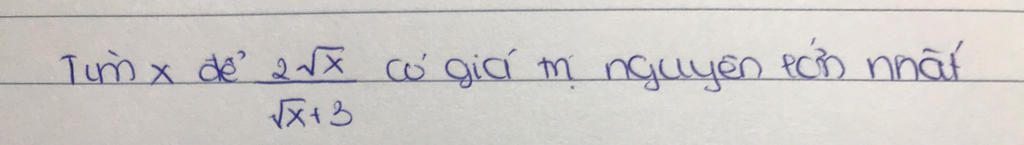 Tìm x để 2√x / (√x + 3) có giá trị nguyên lớn nhất